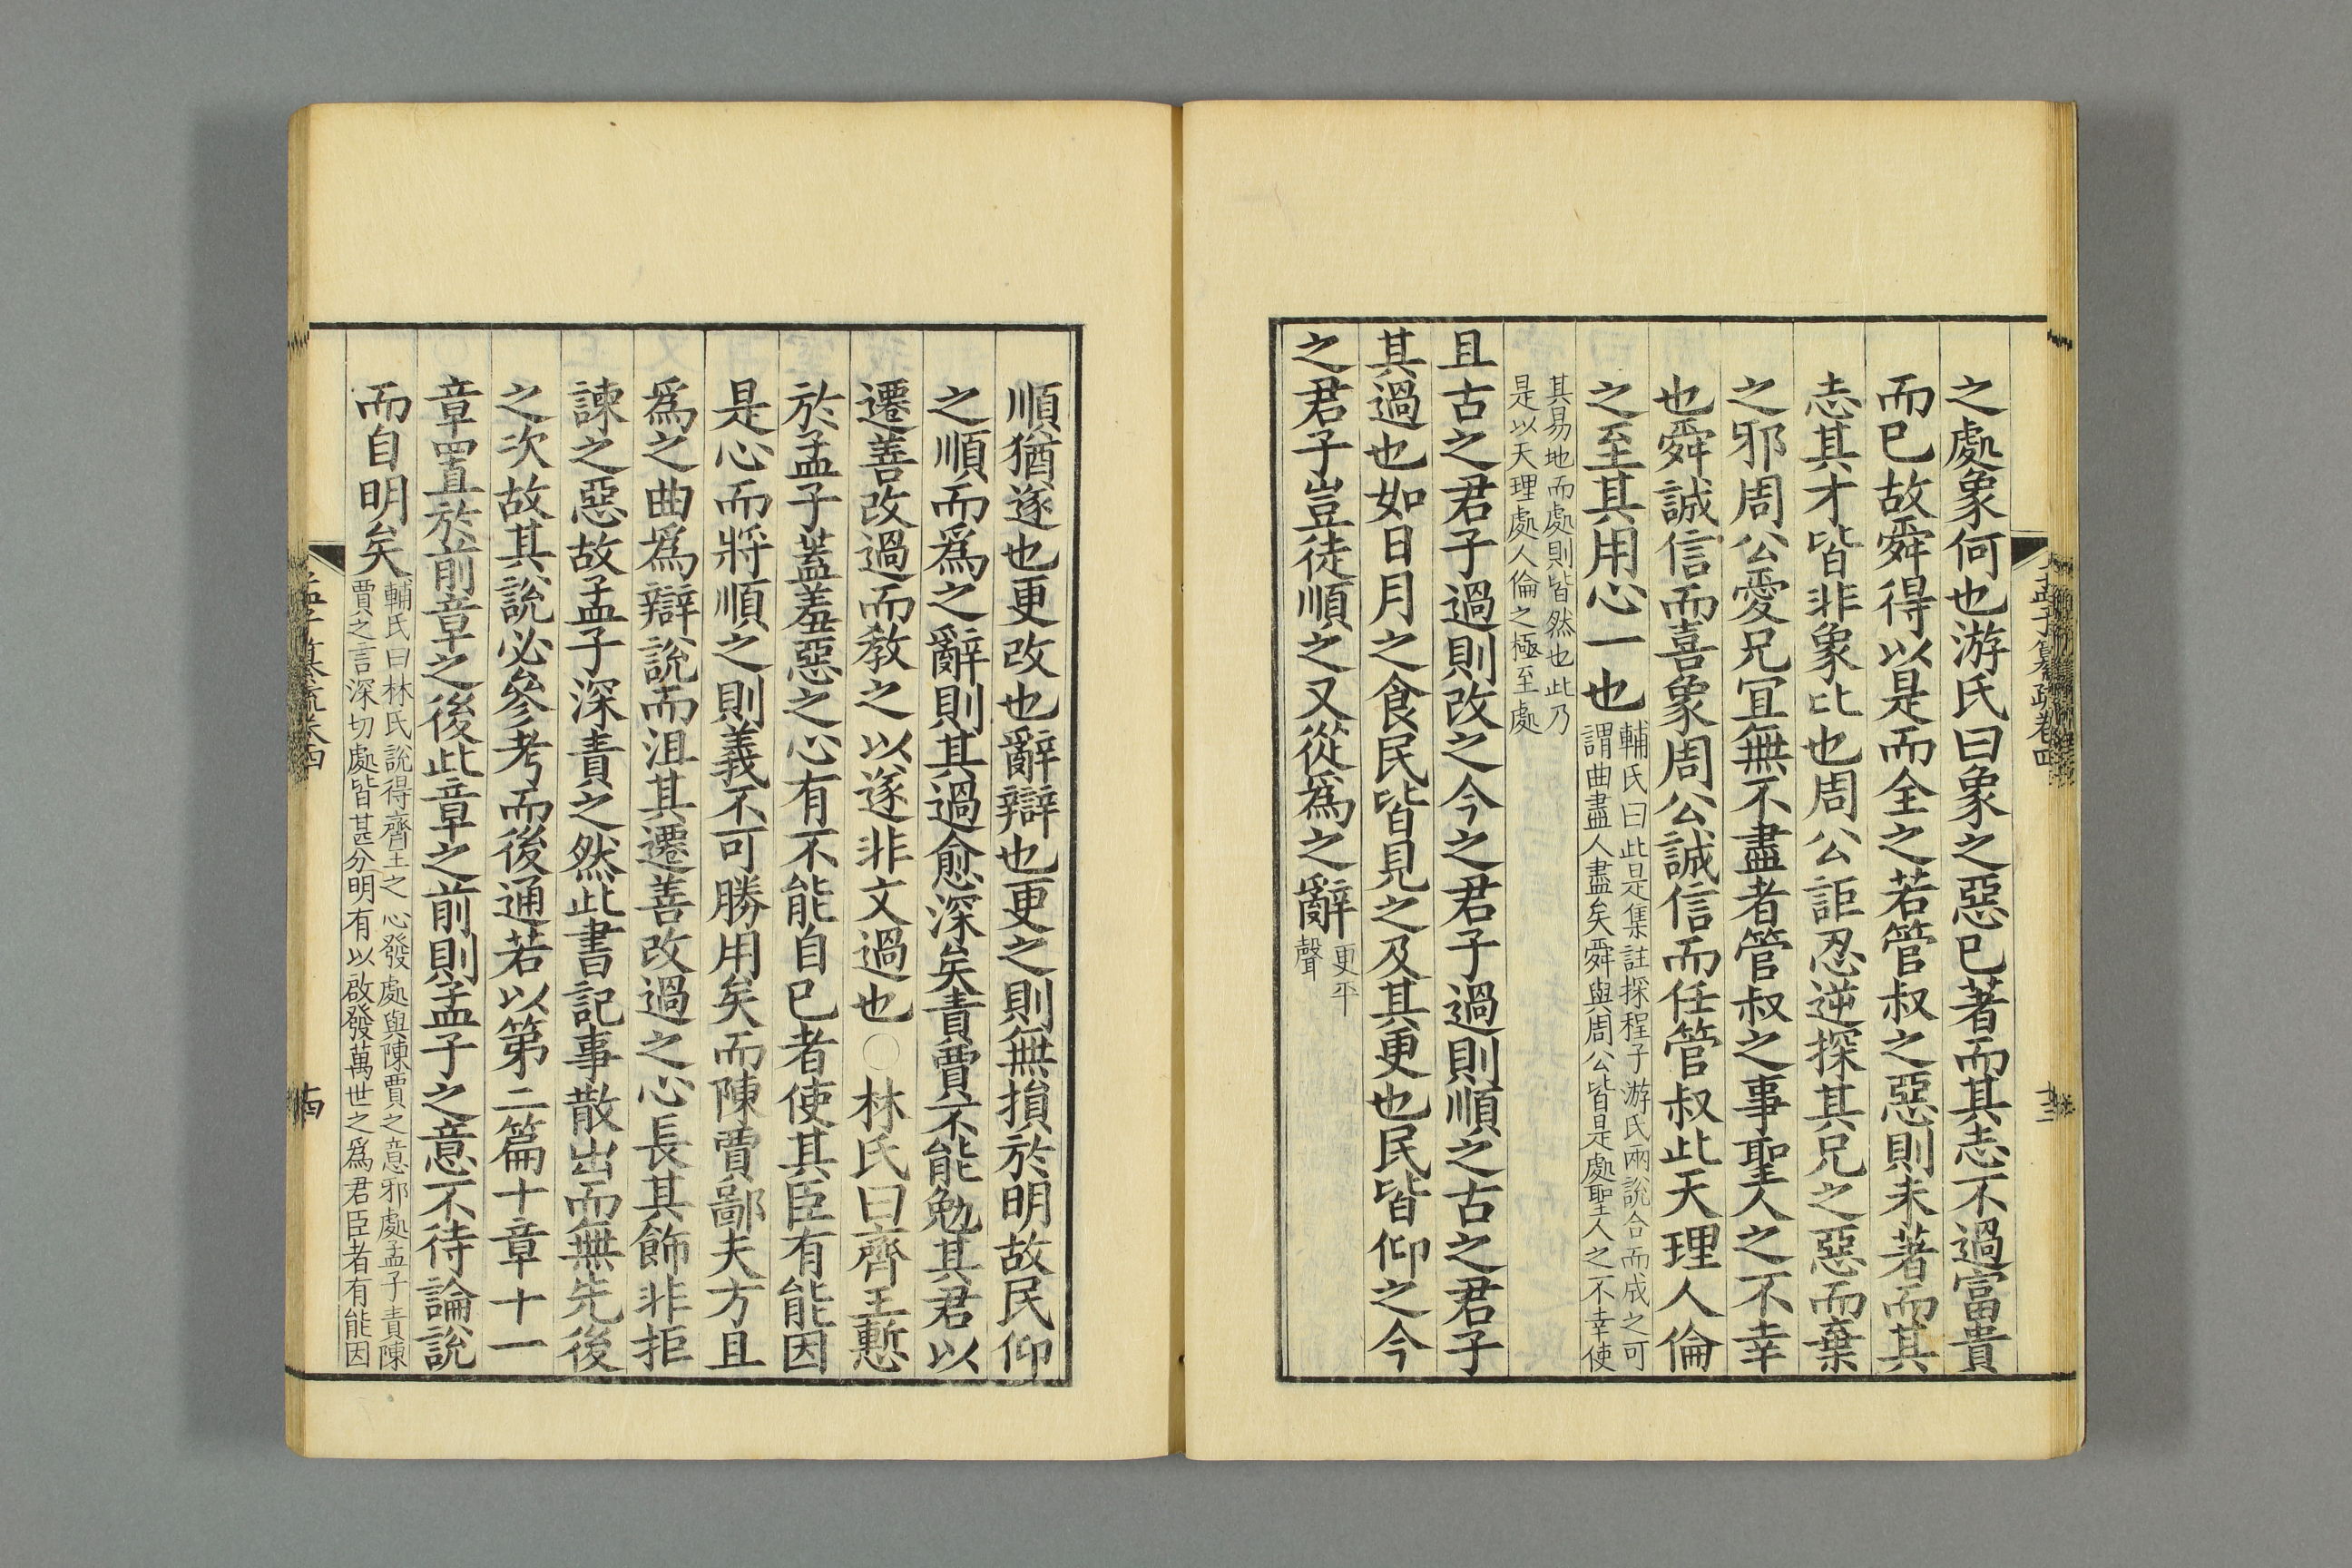 之處象何也游氏曰象之惡已著而其志不過富貴
而已故舜得以是而全之若管叔之惡則未著而其
志其才皆非象比也周公詎忍逆探其兄之惡而棄
之邪周公愛兄宜無不盡者管叔之事聖人之不幸
也舜誠信而喜象周公誠信而任管叔此天理人倫
之至其用心一也
輔氏曰此是集註探程子游氏兩說合而成之可
謂曲盡人盡矣舜與周公皆是處聖人之不幸使
其易地而處則皆然也此乃
是以天理處人倫之極至處
且古之君子過則改之今之君子過則順之古之君子
其過也如日月之食民皆見之及其更也民皆仰之今
之君子豈徒順之又從爲之辭
更平
聲
順猶遂也更改也辭辯也更之則無損於明故民仰
之順而爲之辭則其過愈深矣責賈不能勉其君以
遷善改過而教之以遂非文過也○林氏曰齊王慙
於孟子蓋羞惡之心有不能自已者使其臣有能因
是心而將順之則義不可勝用矣而陳賈鄙夫方且
爲之曲爲辯說而沮其遷善改過之心長其飾非拒
諫之惡故孟子深責之然此書記事散出而無先後
之次故其說必參考而後通若以第二篇十章十一
章置於前章之後此章之前則孟子之意不待論說
而自明矣
輔氏曰林氏說得齊王之心發處與陳賈之意邪處孟子責陳
賈之言深切處皆甚分明有以啟發萬世之爲君臣者有能因
孟子纂疏卷四